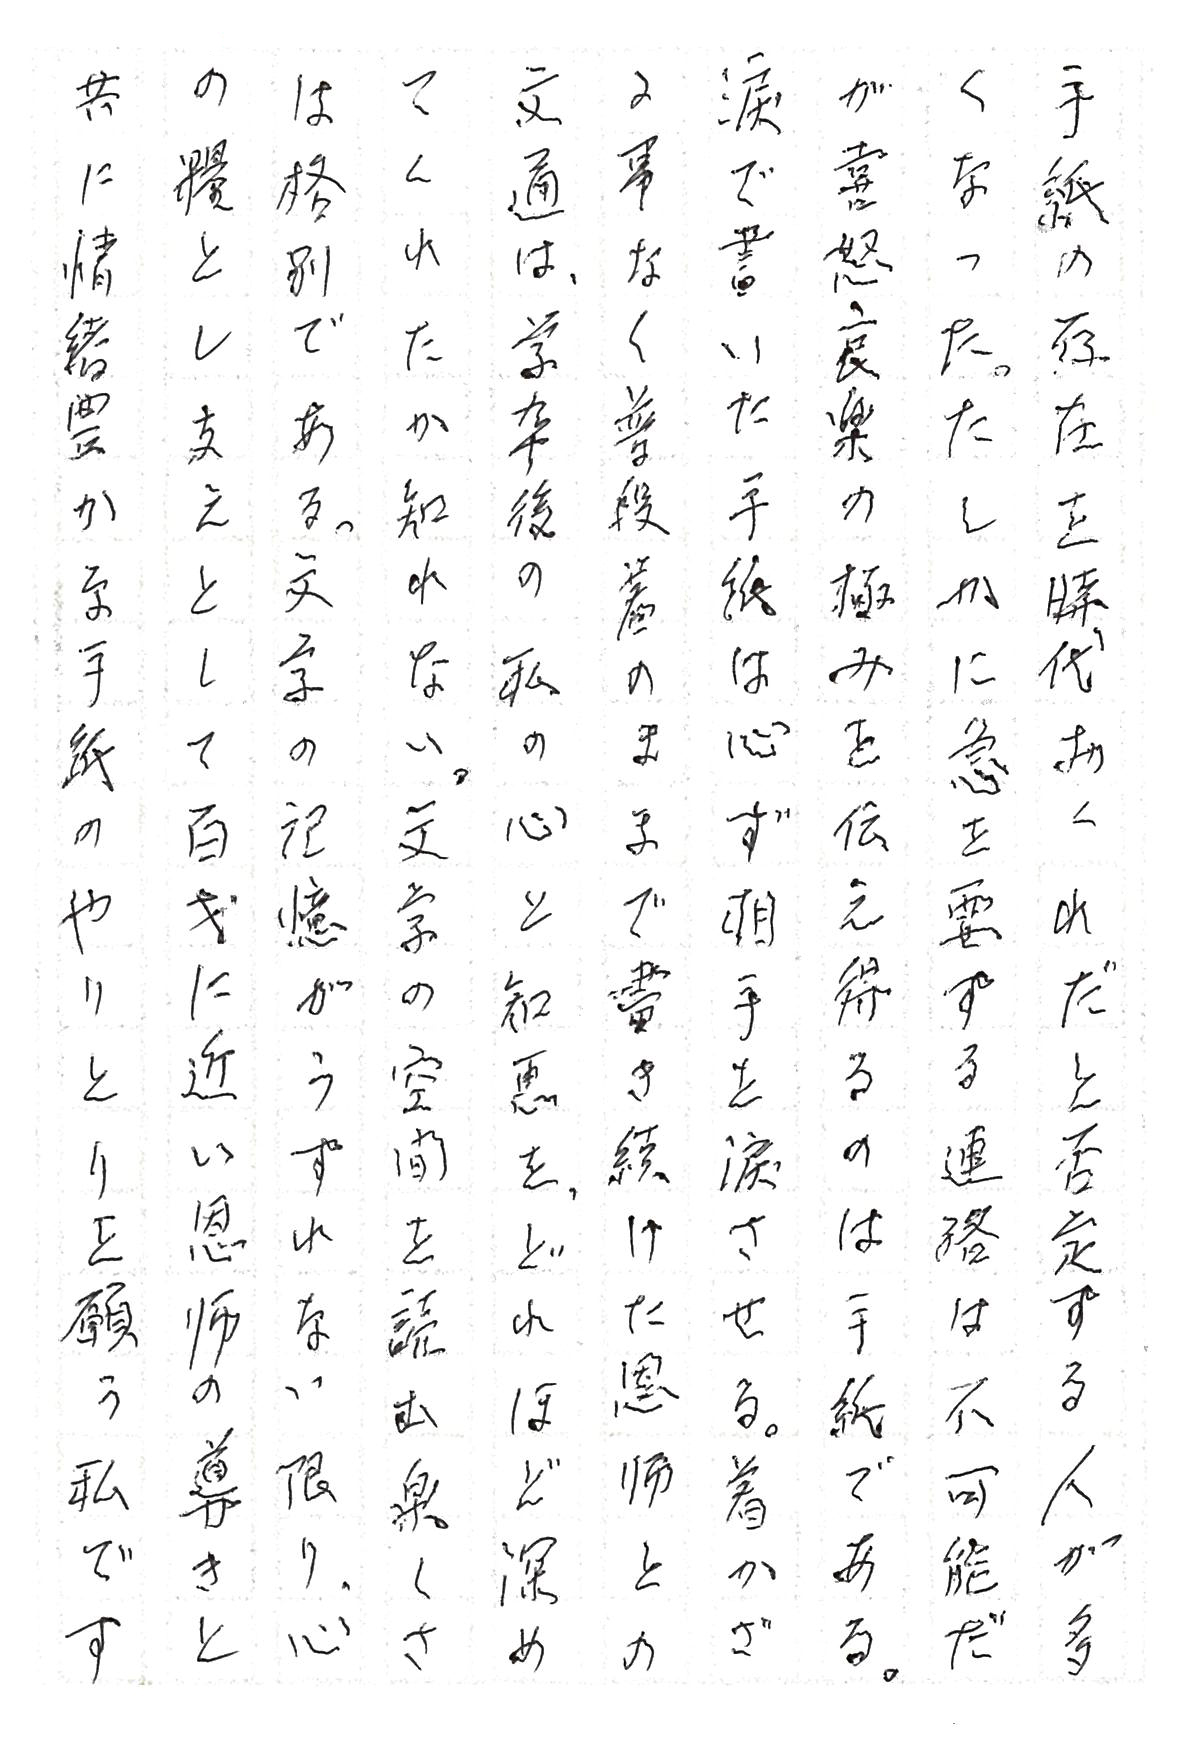 手紙の存在を時代おくれだと否定する人が多
くなった。たしかに急を要する連絡は不可能だ
が喜怒哀楽の極みを伝え得るのは手紙である。
涙で書いた手紙は心ず相手を涙させる。着かざ
る事なく普段着のままで書き続けた恩師との
文通は、学卒後の私の心と知恵を、どれほど深め
てくれたか知れない。文学の空間を読む楽しさ
は格別である。文字の記憶がうすれない限り、心
の糧とし支えとして百才に近い恩師の導きと
共に情緒豊かな手紙のやりとりを願う私です